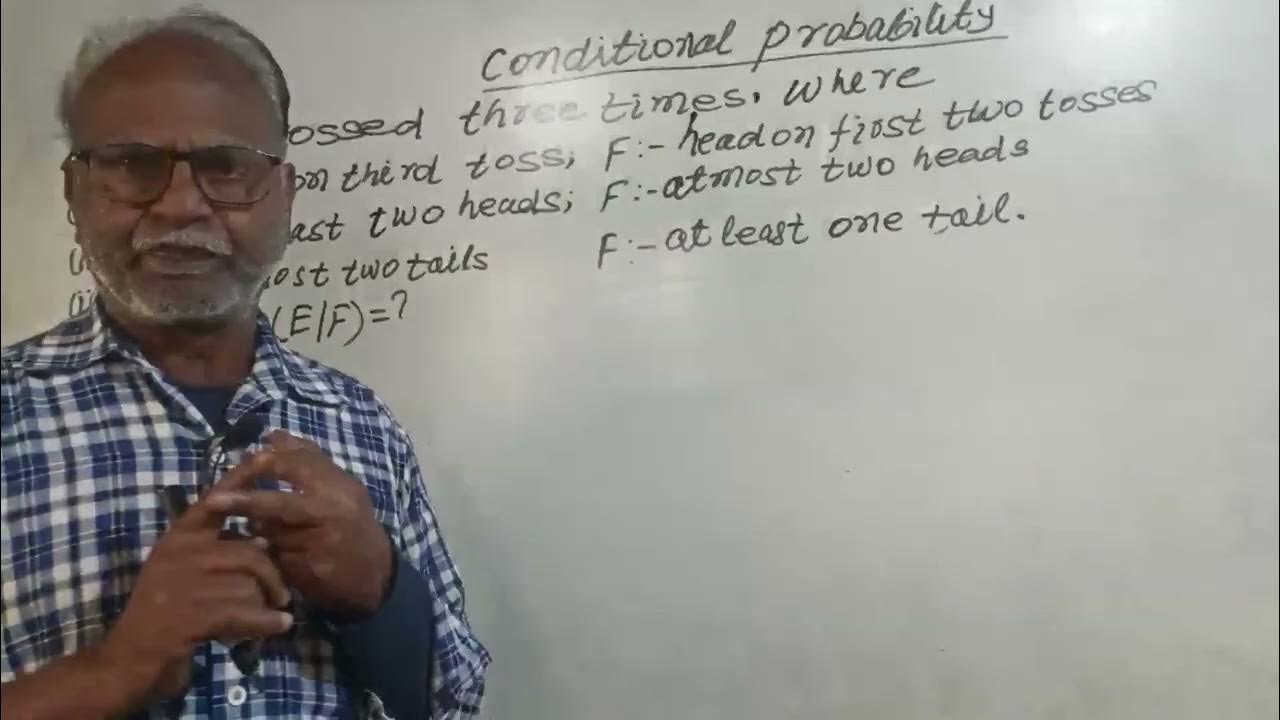 Conditional Probability
ossed three times. Where
on third toss; F:- head on first two tosses
ast two heads; F:- atmost two heads
ost two tails F:- at least one tail.
(E/F)=?